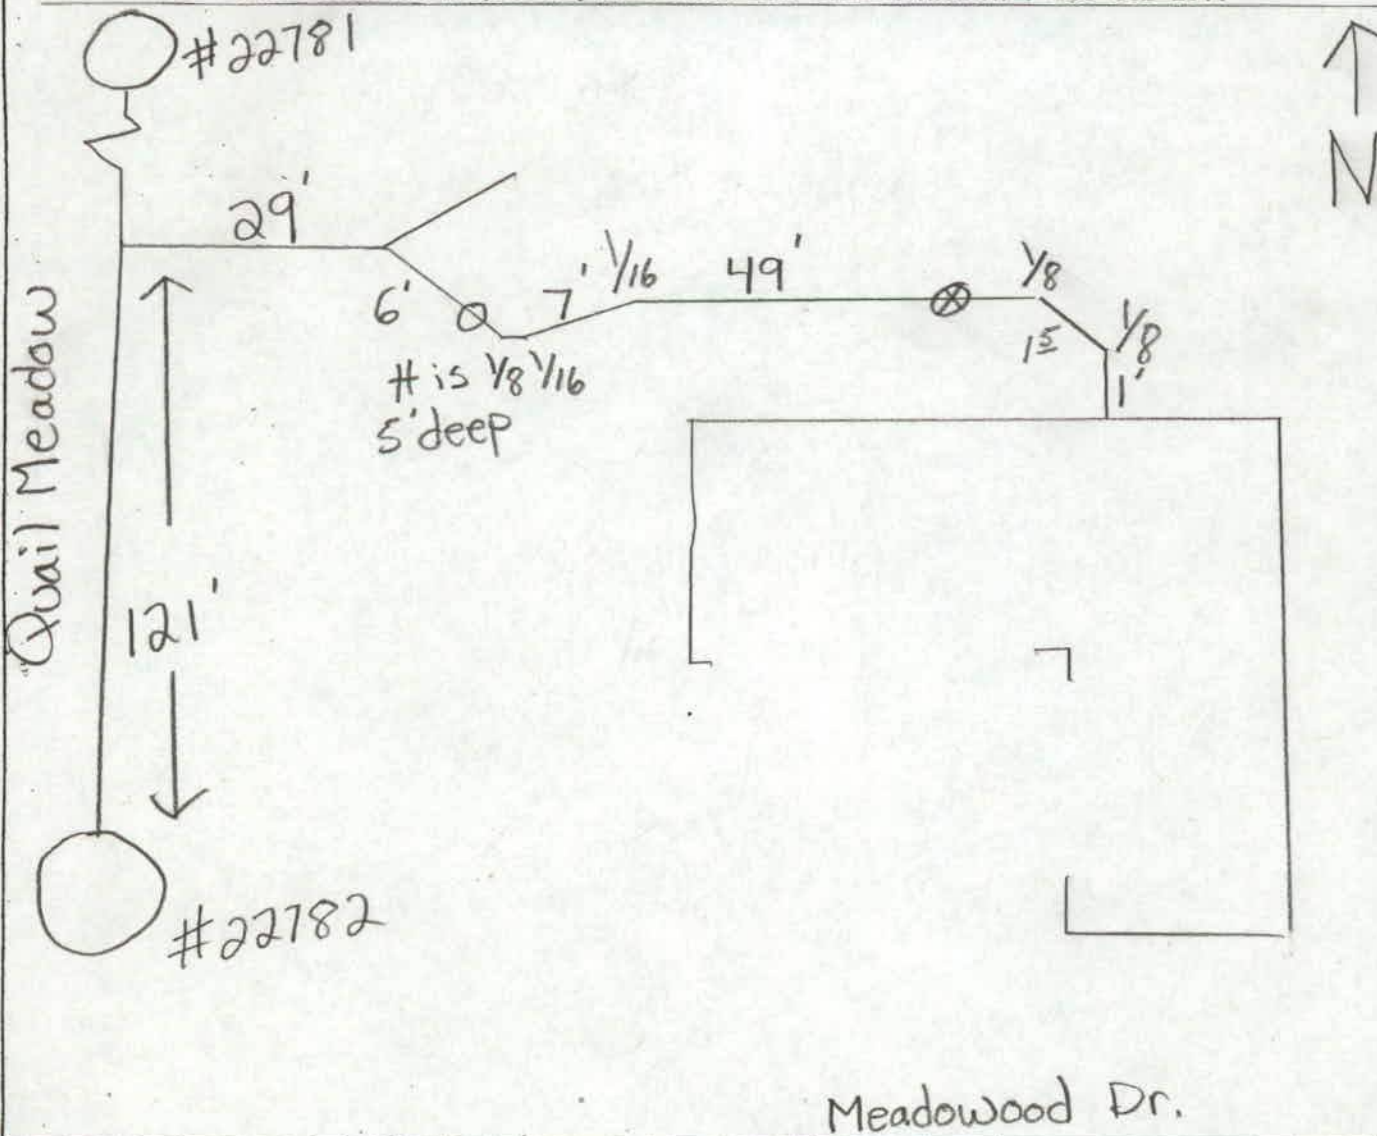 #22781
N
29'
6'
7'
1/16
49'
1/8
1/8
1⁵
1'
H is 1/8 1/16
5' deep
Quail Meadow
121'
#22782
Meadowood Dr.